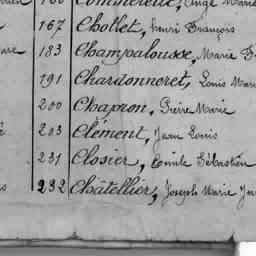 167 Chollet, Henri François
183 Champalousse, Marie
191 Chardonneret, Louis Marie
200 Chapron, Pierre Marie
203 Clément, Jean Louis
231 Closier, Emile Sébastien
232 Châtellier, Joseph Marie